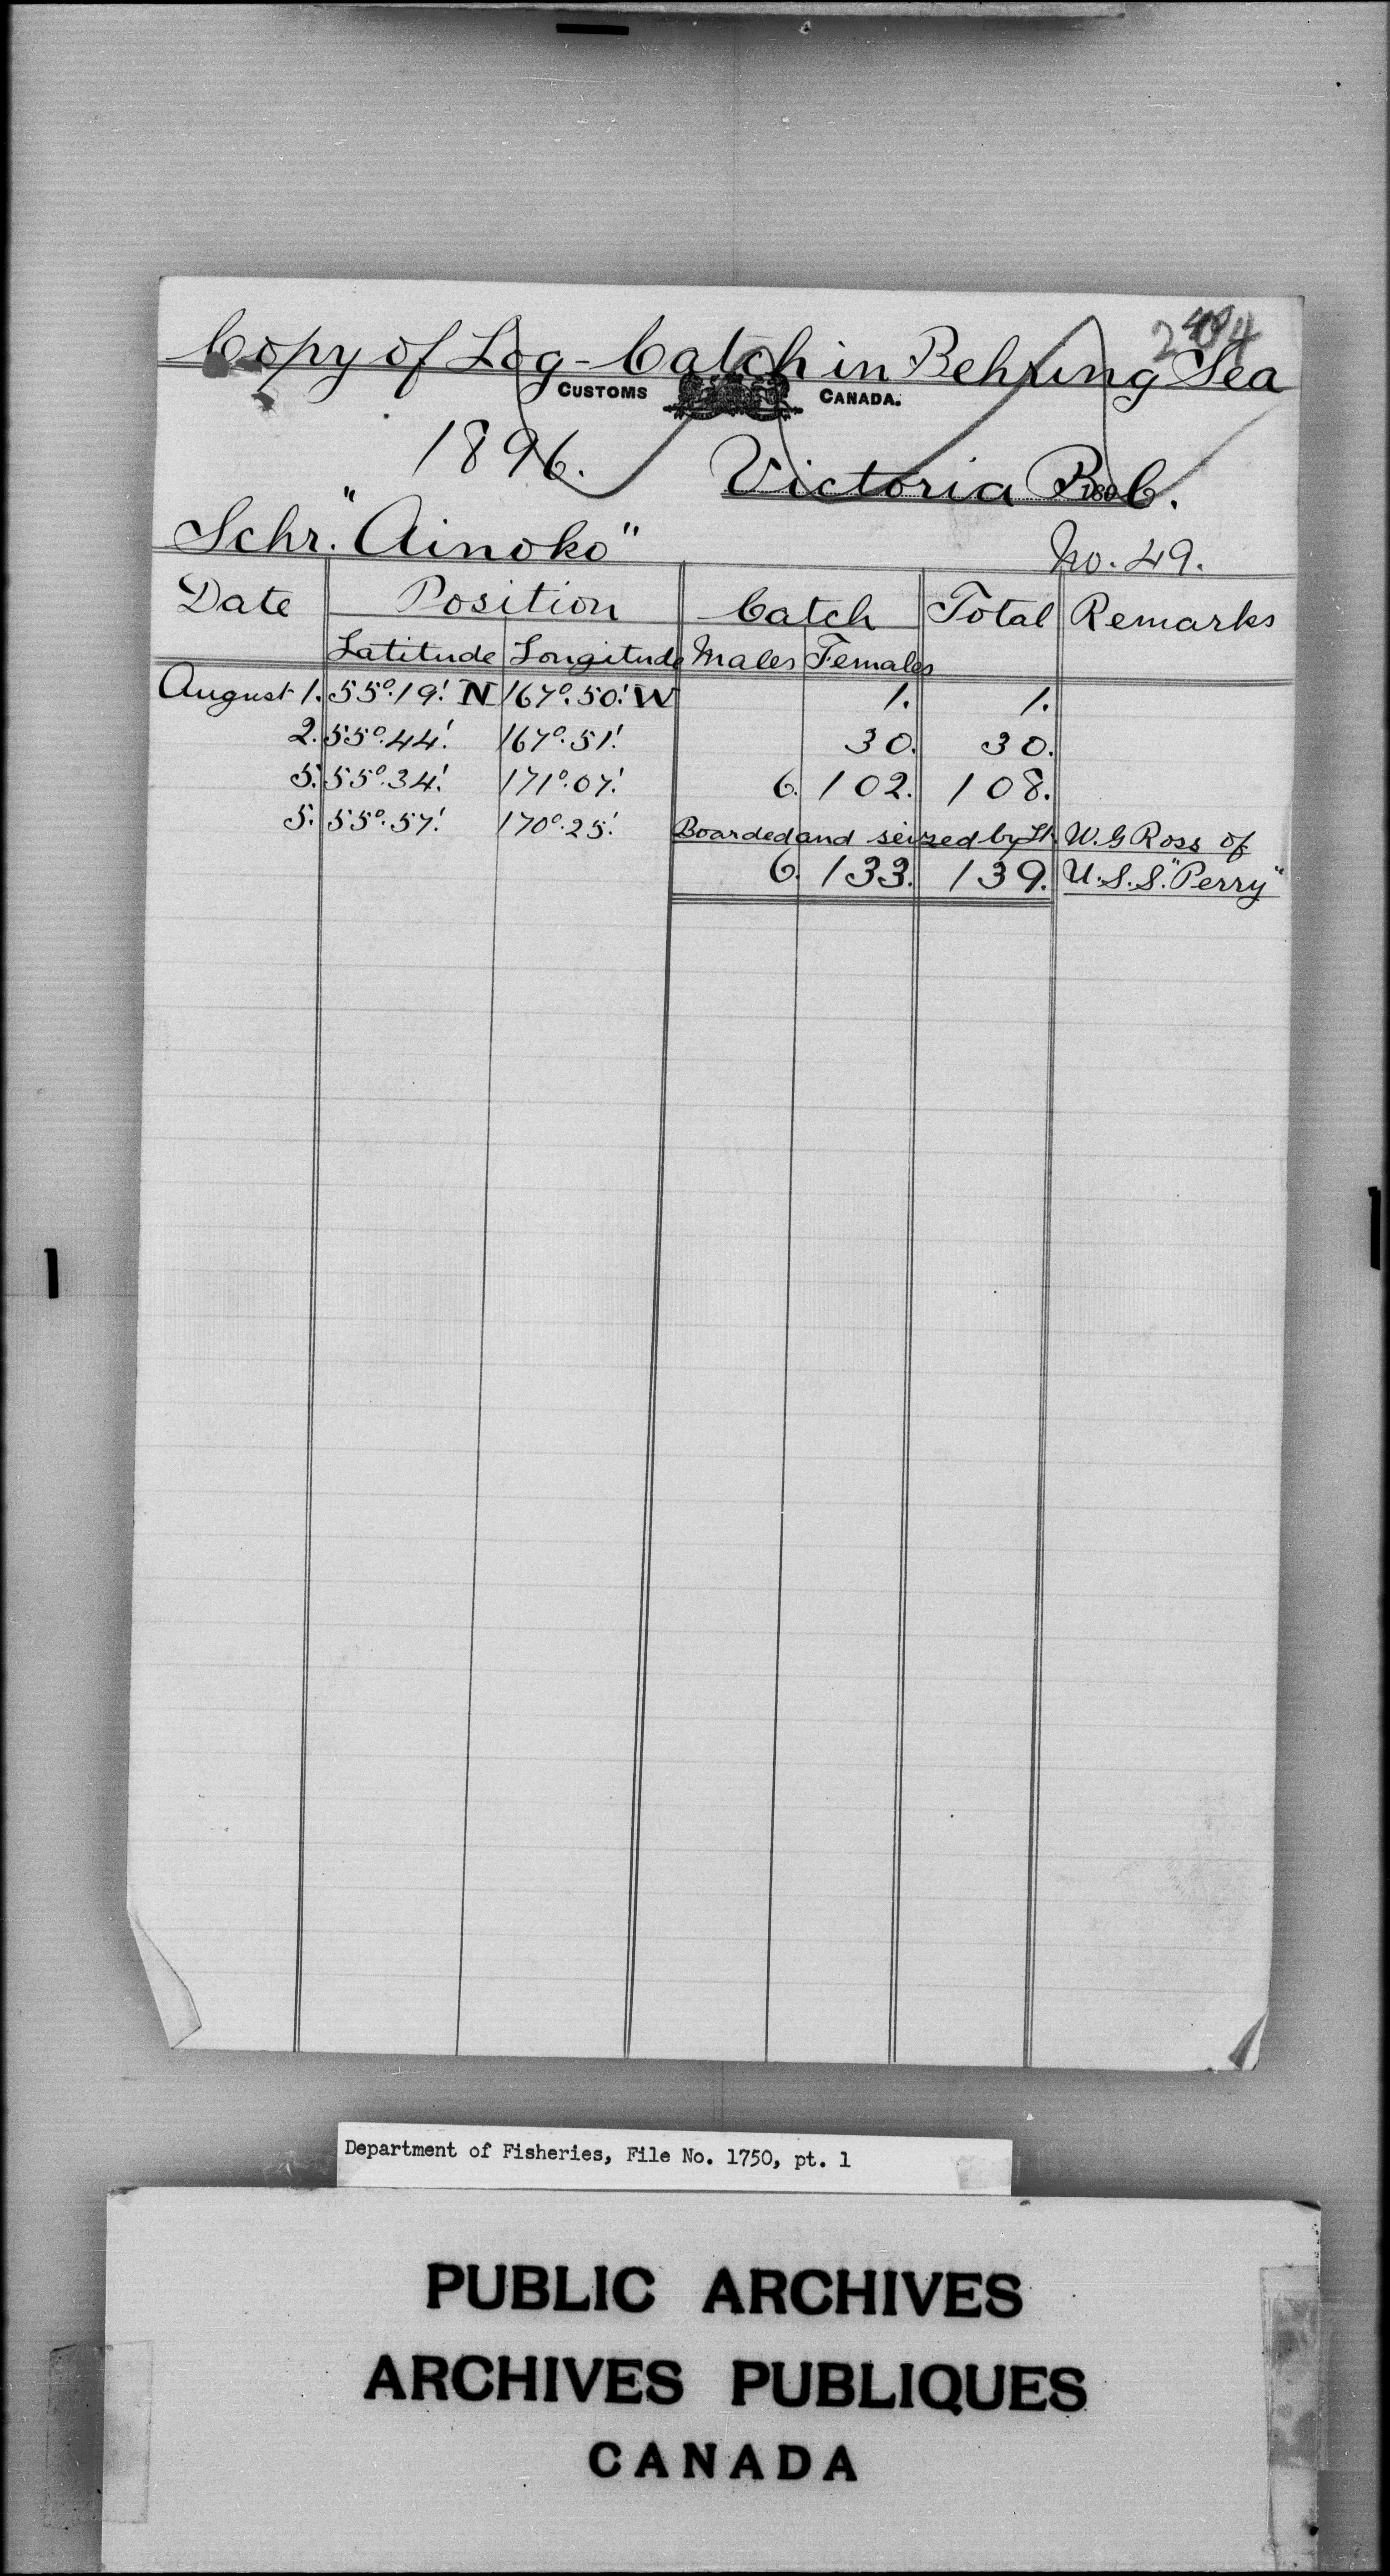 Copy of Log - Catch in Behring Sea
CUSTOMS CANADA.
1896. Victoria B.C.
Schr. "Ainoko" No. 49.
Date Position Catch Total Remarks
Latitude Longitude Males Females
August 1. 55°.19.' N 167°.50.' W 1. 1.
2. 55°.44.' 167°.51.' 30. 30.
5. 55°.34.' 171°.07.' 6. 102. 108.
5. 55°.57.' 170°.25.' Boarded and seized by Lt. W. G Ross of
6. 133. 139. U.S.S. "Perry"
Department of Fisheries, File No. 1750, pt. 1
PUBLIC ARCHIVES
ARCHIVES PUBLIQUES
CANADA